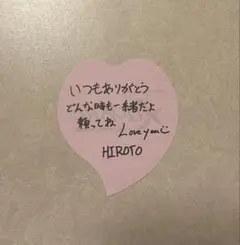 いつもありがとう
どんな時も一緒だよ
頼ってね
Love you
HIROTO